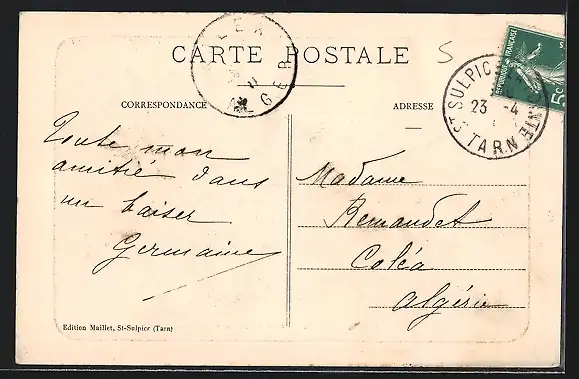 CARTE POSTALE
5
CORRESPONDANCE
ADRESSE
ALGER
ST SULPICE
23 -4
TARN
REPUBLIQUE FRANÇAISE
5c
Toute mon
amitié dans
un baiser
Germaine
Madame
Remaudet
Coléa
Algérie
Edition Maillet, St-Sulpice (Tarn)